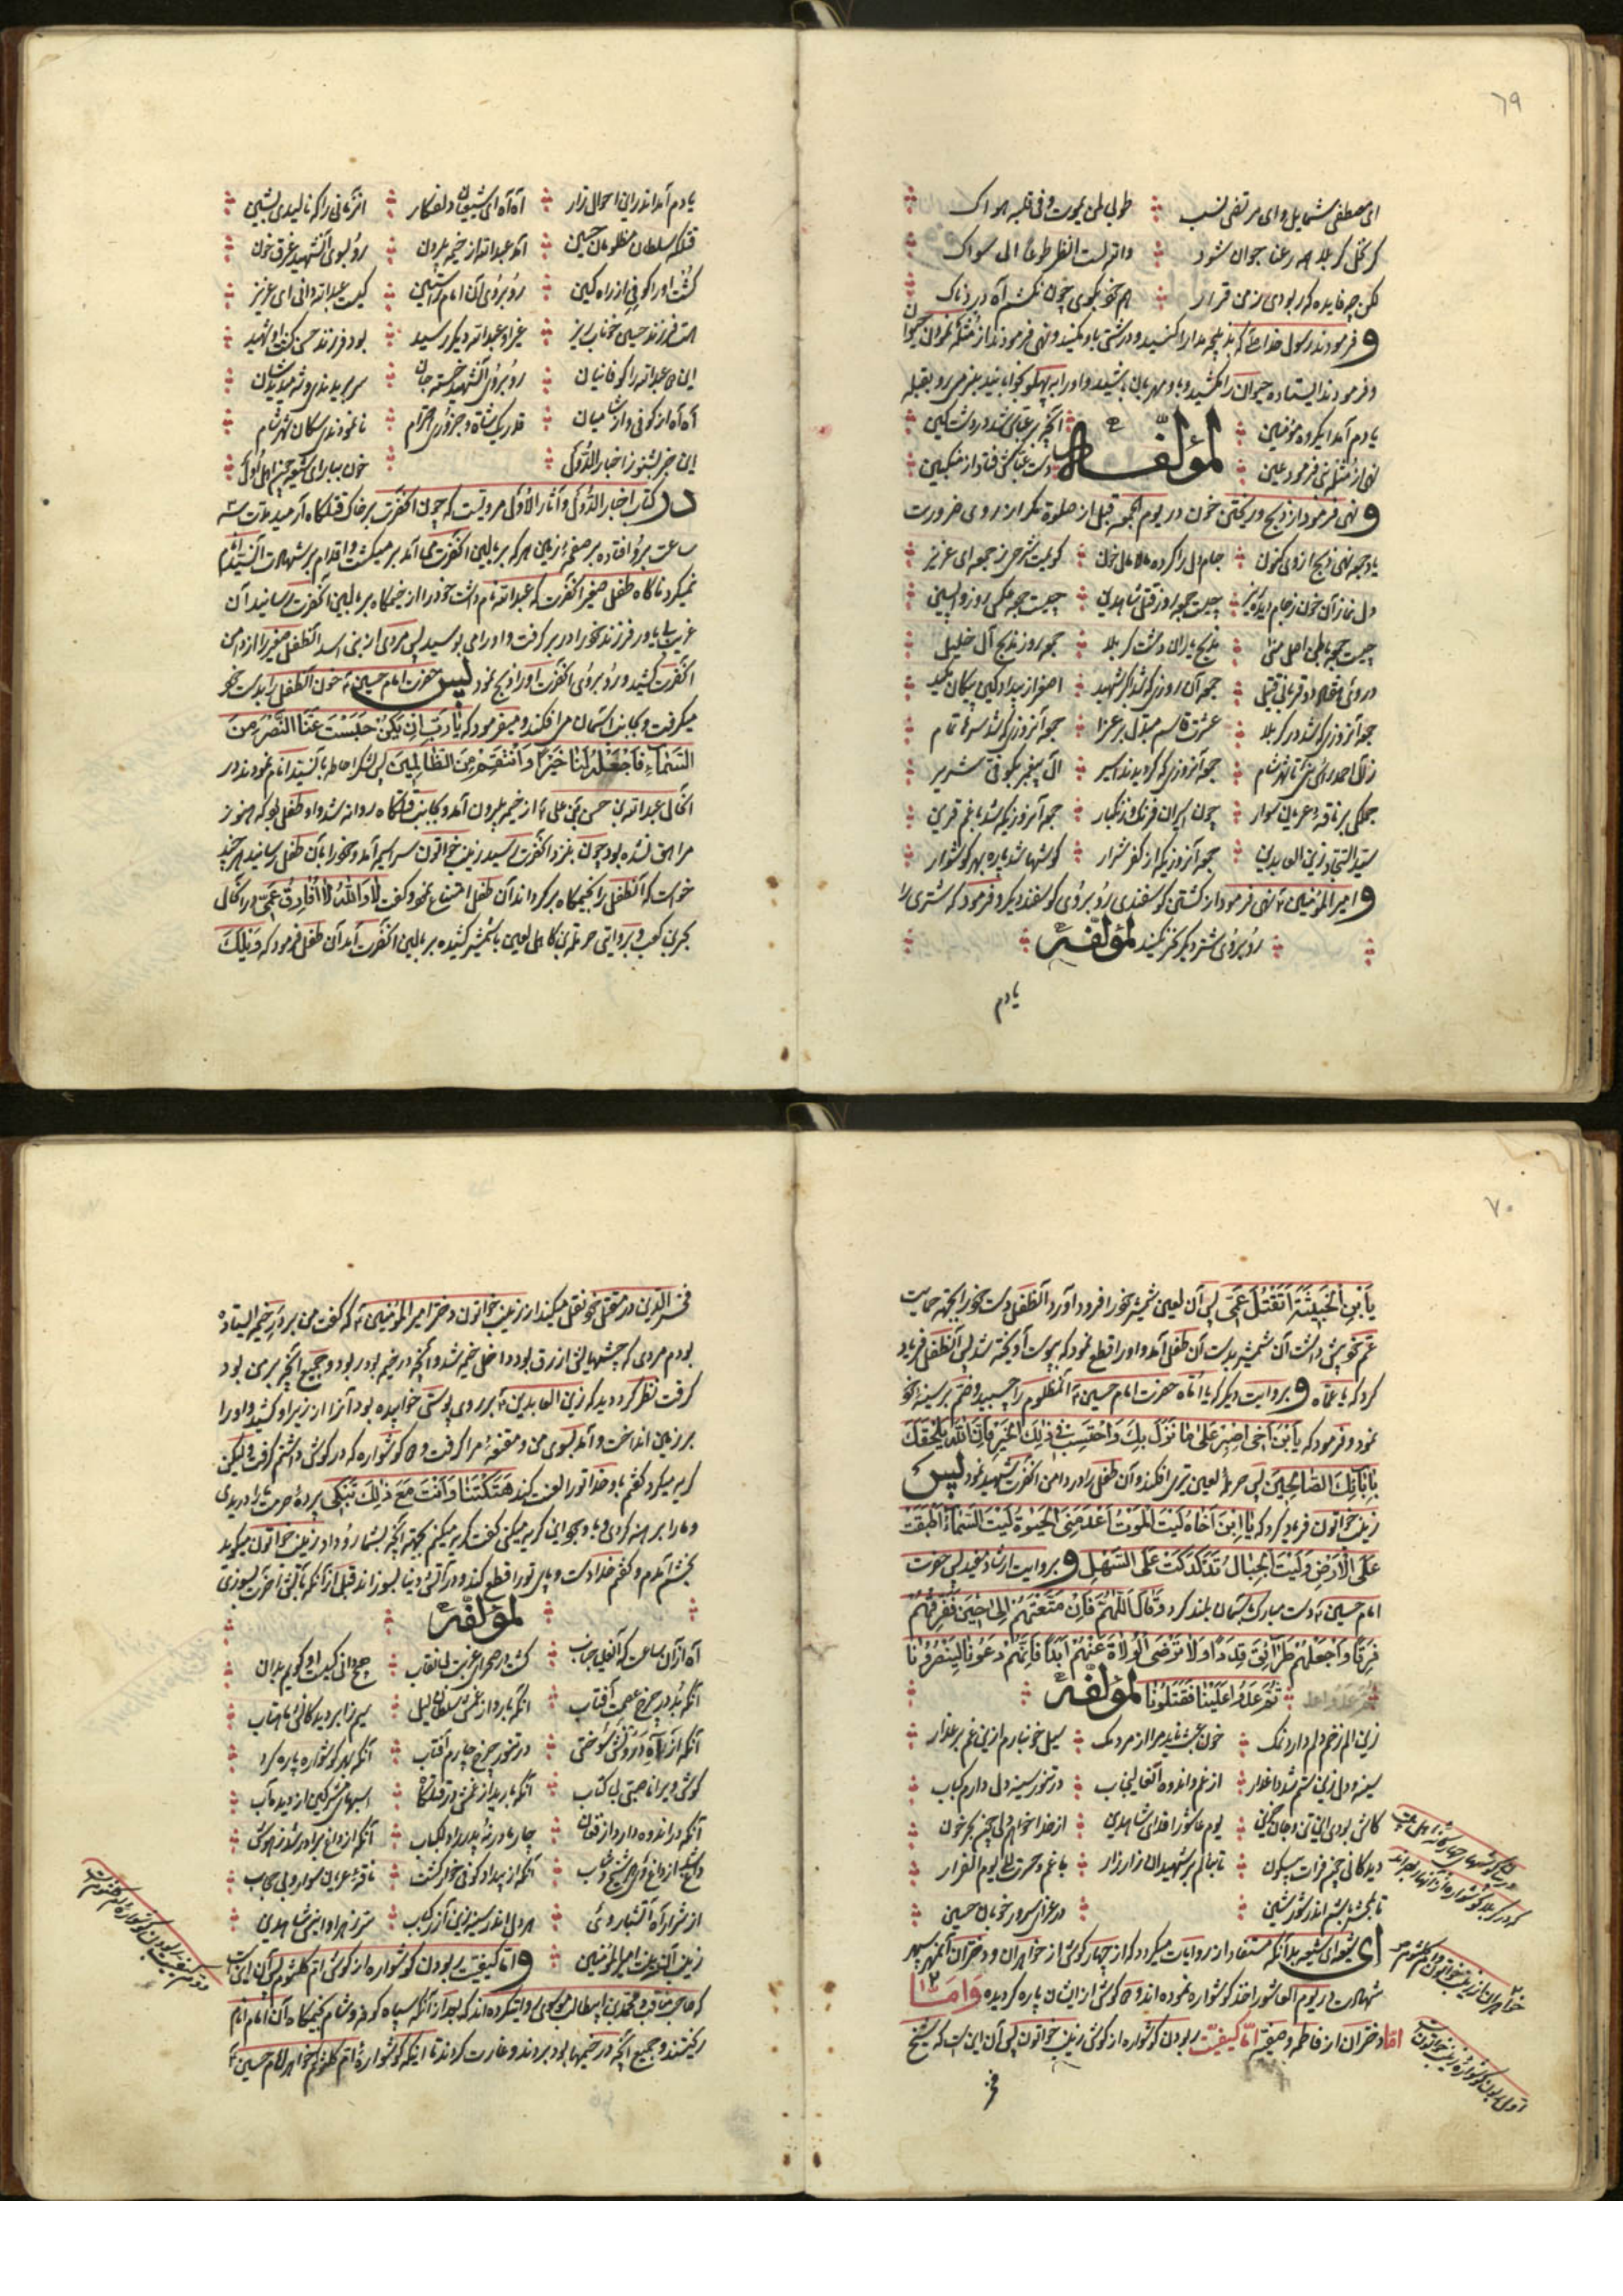 ٦٩
ای مصطفی شمایل و ای مرتضی نسب طوبی لمن یموت و فی قلبه هواک
کز نخل کربلا هر رعنا جوان شود و الله لست انظر طوعا الی سواک
لکن چه فایده که ربودی ز من قرار هم خود بگوی چون نکشم آه دردناک
و فرمودند رسول خدا که بذبیحه مدارا کنید و درشتی باو مکنید و نهی فرمودند از مثله نمودن حیوان
و فرمودند ایستاده حیوان را مکشید و باو مهربان باشید و او را به پهلو بخوابانید بنرمی رو بقبله
یادم آمد ایگروه مؤمنین لمؤلفه آنچه بر عباس شد در دشت کین
نهی از مثله نبی فرمود عین دست عباسش فتاد از تن کین
و نهی فرمود از ذبح و ریختن خون در یوم الجمعه قبل از صلوة مگر از روی ضرورت
یا وجه نهی ذبح از وی کنون جام دل را کرده مالامال خون گویمت شرحی ز جمعه ای عزیز
دل نماز آن خون ز جام دیده ریز چیست جمعه روز قتل شاه دین چیست جمعه عکس روز واپسین
چیست جمعه باطن اصل منی ذبح یاران دشت کربلا جمعه روز ذبح آل خلیل
در منی دو قربانی قتیل جمعه آن روزی که شد اکبر شهید اصغر از بیداد کین پیکان مکید
جمعه آنروزی که شد در کربلا عشرت قاسم مبدل بر عزا جمعه آنروزی که شد سوی شام
ز آل احمد رأس شان تا شهر شام جمعه آنروزی که گردیدند اسیر آل پیغمبر بکوفی شریر
جملگی بر ناقه عریان سوار چون اسیران فرنگ و زنگبار جمعه آنروزیکه شد با غم قرین
سید السجاد زین العابدین جمعه آنروزیکه از کفر شرار گوشها شد پاره بهر گوشوار
و امیر المؤمنین نهی فرمود از کشتن گوسفندی روبروی گوسفند دیگر و فرمود که شتری را
روبروی شتر دیگر نحر نکنید لمؤلفه
یادم
یادم آمد اندر این احوال زار آه آه ای شیعیان دلفکار آنزمانی را که نالیدی بشین
قتلگه سلطان مظلومان حسین آمد عبدالله از خیمه برون رو بسوی آنشهید غرق خون
کشت او را کوفی از راه کین روبروی آن امام راستین کیست عبدالله دانی ای عزیز
هست فرزند حسین خونابه ریز غیر او عبدالله دیگر رسید بود فرزند حسن گشت او شهید
این عبدالله را کوفانیان روبروی آنشهید خسته جان سر بریدندی و شه میدید آن
آه آه از کوفی و از شامیان قدر یک شاة و جزور محترم نانمودندی سگان شهر شام
این خبر بشنو ز اخبار الدول خون ببار ای شیعه چشم اهل دل
در کتاب اخبار الدول و آثار الاول مرویست که چون آنحضرت بر خاک قتلگاه آرمید مدت سه
ساعت برو افتاده بر صفحه زمین هر که ببالین آنحضرت می آمد برمیگشت و اقدام بر شهادت آنسید انام
نمیکرد ناگاه طفل صغیر آنحضرت که عبدالله نام داشت خود را از خیمگاه ببالین آنحضرت رسانید آن
غریب بی یاور فرزند خود را در بر گرفت و او را می بوسید پس مردی از بنی اسد آنطفل صغیر را از دامن
آنحضرت کشید و روبروی آنحضرت او را ذبح نمود پس حضرت امام حسین خون آنطفل را بدست خود
میگرفت و بجانب آسمان می افکند و میفرمود که یٰا رَبِّ اِن تَکُنْ حَبَسْتَ عَنَّا النَّصْرَ مِنَ
السَّمٰاءِ فَاجْعَلْهُ لَنٰا خَیْرًا وَ انْتَقِمْ مِنَ الظّٰالِمینَ پس لشکر احاطه بآنسید انام نمودند در
آنحال عبدالله بن حسن بن علی از خیمه بیرون آمد و بجانب قتلگاه روانه شد و او طفلی بود که هنوز
مراهق نشده بود چون بنزد آنحضرت رسید زینب خاتون سراسیمه آمد و خود را بآن طفل رسانید هر چند
خواست که آنطفل را بخیمگاه برگرداند آن طفل امتناع نمود و گفت لٰا وَ اللّٰهِ لٰا اُفٰارِقُ عَمّی در آنحال
بحر بن کعب و بروایتی حرملة بن کاهل لعین با شمشیر کشیده ببالین آنحضرت آمد آن طفل فرمود که وَیْلَکَ
٧٠
یَا بْنَ الْخَبیثَةِ اَتَقْتُلُ عَمّی پس آن لعین شمشیر خود را فرود آورد آنطفل دست خود را بجهة حمایت
عم خویش داشت آن شمشیر بدست آن طفل آمد و او را قطع نمود که بپوست آویخته شد پس آنطفل فریاد
کرد که یا عماه و بروایت دیگر که یا اماه حضرت امام حسین آنمظلوم را چسبید و ضم بر سینه خود
نمود و فرمود که یَا بْنَ اَخی اصْبِرْ عَلیٰ مٰا نَزَلَ بِکَ وَ احْتَسِبْ فی ذٰلِکَ الْخَیْرَ فَاِنَّ اللّٰهَ یُلْحِقُکَ
بِآبٰائِکَ الصّٰالِحینَ پس حرملهٔ لعین تیری افکند و آن طفل را در دامن آنحضرت شهید نمود پس
زینب خواتون فریاد کرد که یَا ابْنَ اَخٰاهُ لَیْتَ الْمَوْتُ اَعْدَمَنِی الْحَیٰوةَ لَیْتَ السَّمٰآءَ اَطْبَقَتْ
عَلَی الْاَرْضِ وَ لَیْتَ الْجِبٰالَ تَدَکْدَکَتْ عَلَی السَّهْلِ و بروایت ارشاد مفید پس حضرت
امام حسین دست مبارک بآسمان بلند کرد وَ قٰالَ اَللّٰهُمَّ فَاِنْ مَتَّعْتَهُمْ اِلیٰ حینٍ فَفَرِّقْهُمْ
فِرَقًا وَ اجْعَلْهُمْ طَرٰآئِقَ قِدَدًا وَ لٰا تُرْضِ الْوُلٰاةَ عَنْهُمْ اَبَدًا فَاِنَّهُمْ دَعَوْنٰا لِیَنْصُرُونٰا
ثُمَّ عَدَوْا عَلَیْنٰا فَقَتَلُونٰا لمؤلفه
زین الم زخم دلم دارد نمک خون عبث ناید مرا از مردمک سیل خونبارم ازین غم بر عذار
سینه و دل زین ستم شد داغدار از غم و اندوه آنعالیجناب در تنور سینه دل دارم کباب
کاش بودی این تن و جان حزین یوم عاشورا فدای شاهدین از خدا خواهم دلی چشم بحر خون
دیده کانی چشم فرات بیسکون تا بنالم بر شهیدان زار زار با غم و حسرت الی یوم القرار
تا بمحشر باشم اندر شور و شین در عزای سرور خوبان حسین
ای شیعه ای شیعه بدانکه مستفاد از روایات میگردد که از چهار گوش از خواهران و دختران آنمهر سپهر
شهادت در یوم العاشورا اخذ گوشواره نموده اند و گوش از ایشان پاره گردیده وَ اَمَّا
اما دختران از فاطمه و صفیه امّا کیفیّت ربودن گوشواره از گوش زینب خواتون پس آن این است که شیخ
فخر
فخر الدین در مقتل خود نقل میکند از زینب خواتون دختر امیر المؤمنین که گفت من بر در خیمه ایستاده
بودم مردی که چشمهایش ازرق بود داخل خیمه شد و آنچه در خیمه بود ربود و جمیع آنچه بر من بود
گرفت نظر کرد دید که زین العابدین بر روی پوستی خوابیده بود آنرا از زیر او کشید و او را
بر زمین انداخت و آمد بسوی من و مقنعه مرا گرفت و گوشواره که در گوش داشتم گرفت و لیکن
گریه میکرد گفتم باو خدا تو را لعنت کند هَتَکْتَنٰا وَ اَنْتَ مَعَ ذٰلِکَ تَبْکی پردهٔ حرمت ما را دریدی
و ما را برهنه کردی و با وجود این گریه میکنی گفت گریه میکنم بجهة آنچه بشما رو داد زینب خواتون میگوید
بخشم آمدم و گفتم خدا دست و پای تو را قطع کند و در آتش دنیا بسوزاند قبل از آنکه بآتش آخرت بسوزی
لمؤلفه
آه از آن ساعت که آنعالیجناب گشت در صحرای غربت بی نقاب هیچ دانی کیست او گویم بدان
آنکه بُد در برج عصمت آفتاب آنکه بارد از غمش سلطان لیل سیم ز ابر دیدگان ماهتاب
آنکه از آه درونش سوختی در تنور چرخ چارم آفتاب آنکه بهر گوشواره پاره کرد
گوش ویرا ناصبی بی کتاب آنکه بارید از غمش در قتلگاه اسبهای مشرکین از دیده آب
آنکه در اندوه دارد از فغان چار مادر نه پدر را دلکباب آنکه از داغ برادر شد ز هوش
داغ از داغش دل هر شیخ و شاب آنکه از بیداد کوفی خوار گشت ناقهٔ عریان سوار و بی حجاب
از شرار آه آتشبار وی هر دل اندر سینه زین آذر کباب دختر زهرا و اخت شاهدین
زینب آن بنت امیر المؤمنین و اما کیفیت ربودن گوشواره از گوش ام کلثوم پس آن این است
که صاحب مناقب و محمد بن ابیطالب موسوی روایتکرده اند که بعد از آنکه سپاه کوفه و شام بخیمگاه آن امام انام
ریختند و جمیع آنچه در خیمها بود بردند و غارت کردند تا اینکه گوشوارهٔ ام کلثوم خواهر امام حسین